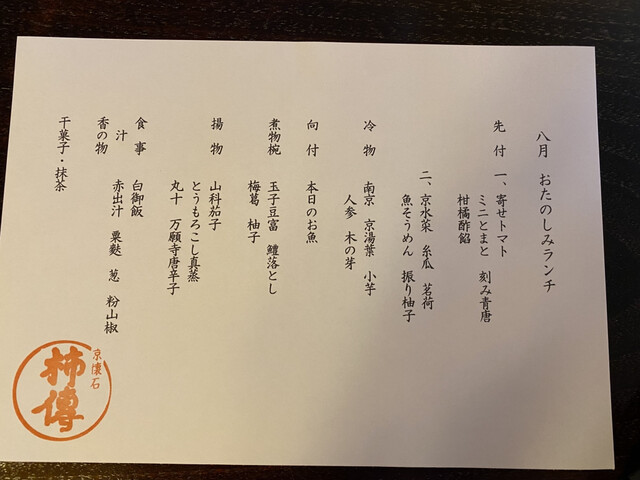 八月 おたのしみランチ
先付 一、寄せトマト
ミニとまと 刻み青唐
柑橘酢餡
二、京水菜 糸瓜 茗荷
魚そうめん 振り柚子
冷物 南京 京湯葉 小芋
人参 木の芽
向付 本日のお魚
煮物椀 玉子豆富 鱧落とし
梅葛 柚子
揚物 山科茄子
とうもろこし真蒸
丸十 万願寺唐辛子
食事 白御飯
汁 赤出汁 粟麩 葱 粉山椒
香の物
干菓子・抹茶
京懐石
柿傳